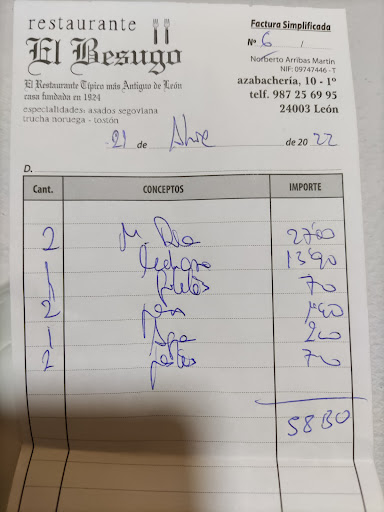 restaurante
El Besugo
El Restaurante Típico más Antiguo de León
casa fundada en 1924
especialidades: asados segoviana
trucha noruega - tostón
Factura Simplificada
Nº 6 /
Norberto Arribas Martín
NIF: 09747446 - T
azabachería, 10 - 1º
telf. 987 25 69 95
24003 León
21 de de 2022
D.
Cant. CONCEPTOS IMPORTE
2 M. Dia 27'00
1 lechazo 13'90
1 7'00
2 pan 1'90
1 Agua 2'00
2 7'00
58'80